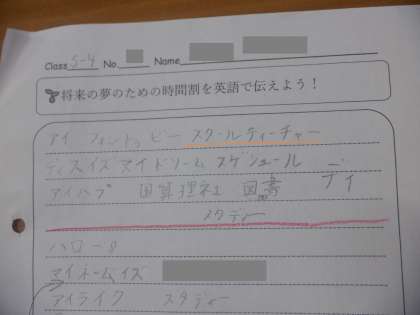 Class 5-4 No. Name
将来の夢のための時間割を英語で伝えよう！
アイ ワォント ビー スクールティーチャー
ディスイズ マイドリーム スケジュール
アイハブ 国算理社 図書 デイ
スタディー
ハロー
マイネームイズ
アイライク スタディー